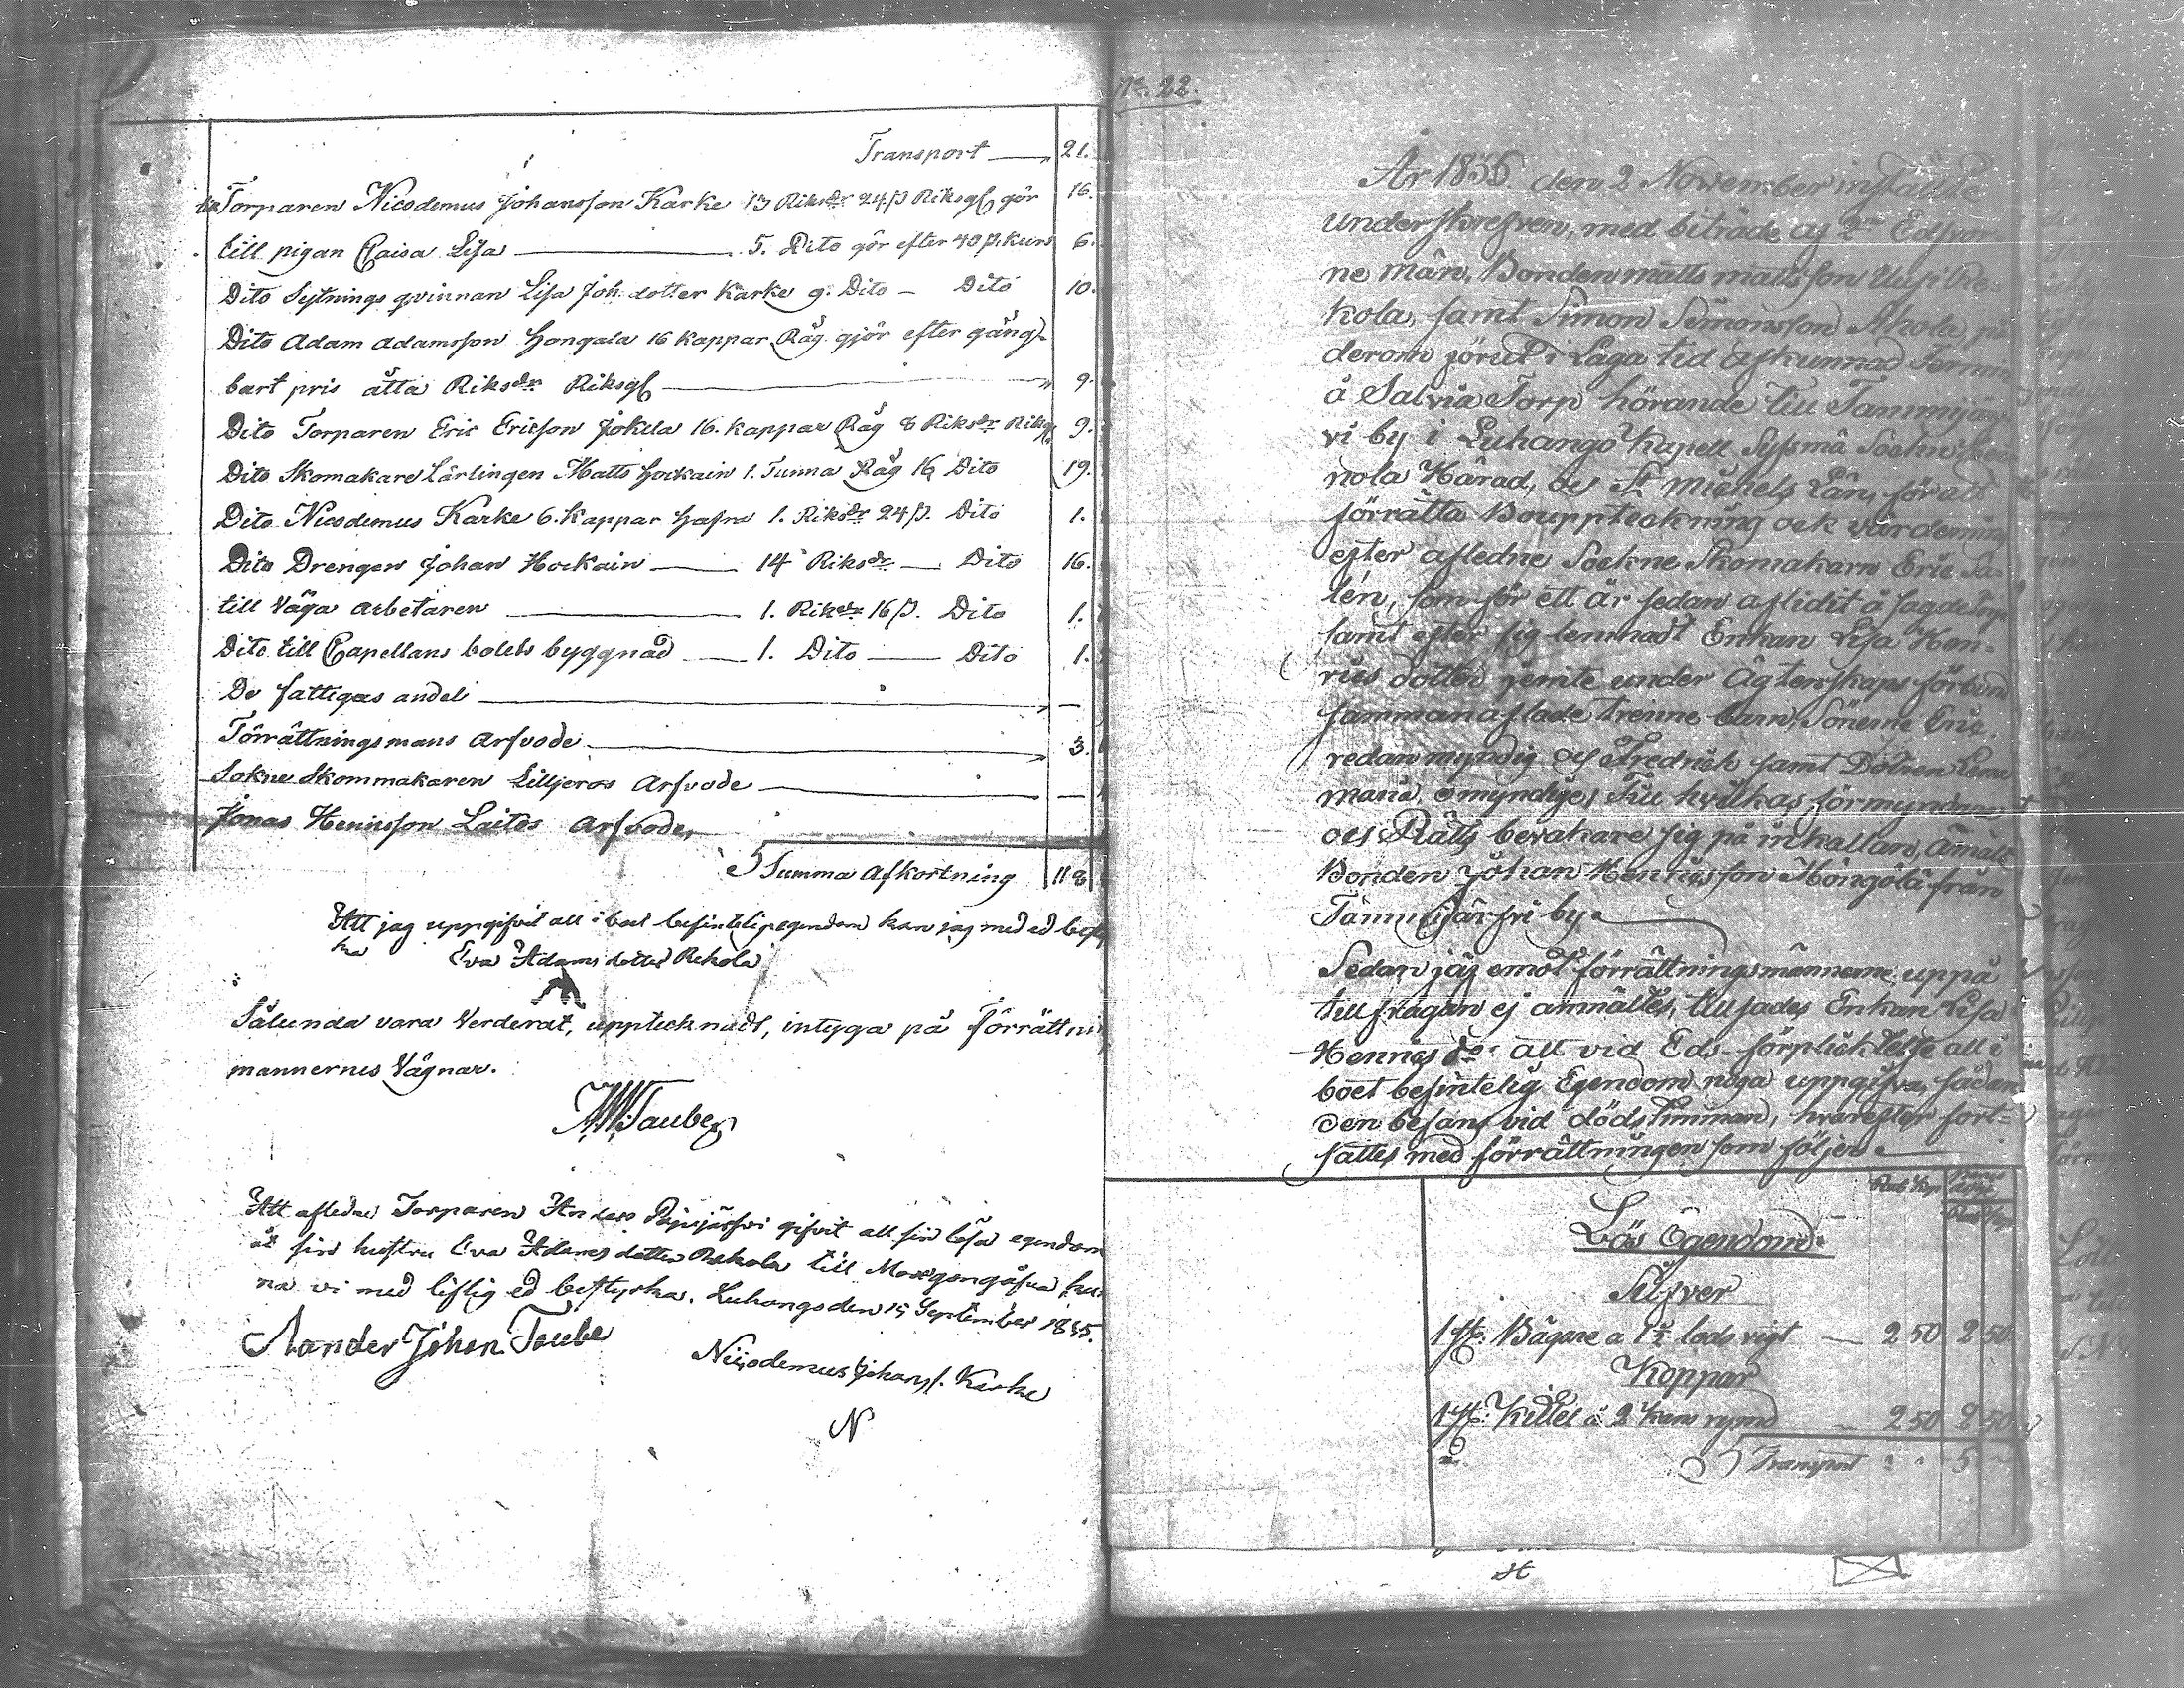 Transport 21.
Torparen Nicodemus Johansson Karke 13 Riksdr 24 β Riksgs gör 16.
till pigan Caisa Lisa 5. Dito gör efter 40 β. kurs 6.
Dito Sytnings qvinnan Lisa Joh. dotter Karke 9. Dito — Dito 10.
Dito Adam Adamsson Hongala 16 Kappar Råg gjör efter gång-
bart pris åtta Riksdr Riksgs 9.
Dito Torparen Eric Ericson Jokela 16. kappar Råg 8 Riksdr Riksgs 9.
Dito Skomakare Lärlingen Matts Hockain 1. Tunna Råg 16 Dito 19.
Dito Nicodemus Karke 6. Kappar Hafra 1. Riksdr 24 β. Dito 1.
Dito Drengen Johan Hockain 14 Riksdr — Dito 16.
till Väga arbetaren 1. Riksdr 16 β. Dito 1.
Dito till Capellans bolets byggnad 1. Dito — Dito 1.
De fattigas andel
Förrättningsmans Arfvode 3.
Sokne Skommakaren Lilljeros Arfvode
Jonas Henrisson Laitos Arfvode
Summa Afkortning 118
Att jag uppgifvit all i boet befinteligegendom kan jag med ed besty
ka Eva Adams dotter Rekola
Sålunda vara Verderat, upptecknadt, intyga på Förrättni
mannernes Vägnar.
Taube
Att aflidne Torparen Anders Päjäjärfvi gifvit all sin lösa egendom
åt sin hustru Eva Adams dotter Rekola till Morgongåfva kun
na vi med liflig ed bestyrka. Luhango den 15 September 1835.
Aander Johan Taube Nicodemus Johans s. Karke
N
No. 22.
År 1836 den 2 November inställte
underskrefven, med biträde af 2ne Edsvor
ne män, Bonden Matts Mattsson Uusi Re-
kola, samt Simon Simonsson Ahola, på
derom förut i Laga tid afkunnad Termin
å Salvia Torp hörande till Tammijär
vi by i Luhango Kapell Sysmä Sockn
nola Härad, och St Michels Län, för att
förrätta Bouppteckning och värdering
efter afledne Sockne Skomakarn Eric Sa-
lén, som för ett år sedan aflidit å sagde Torp
samt efter sig lemnadt Enkan Lisa Hen-
rics dotter jemte under Ägtenskaps förbund
sammanaflade trenne barn, Sönerne Eric
redan myndig och Fredrich samt Dottren Lena
Maria, omyndige, Till hvilkas förmyndare
och Rätts bevakare sig på inkallan, anmält
Bonden Johan Henricsson Möngölä från
Tammijärfvi by.
Sedan jäf emot förrättningsmännerne uppå
tillfrågan ej anmältes, tillsades Enkan Lisa
Henrics dr att vid Eds-förplicktelse all i
boet befintelig Egendom noga uppgifva, sådan
den befans vid dödstimman, hvarefter fort-
sattes med förrättningen som följer.
Lös Egendom
Silfver
1 st. Bägare a 1½ lods vigt 2 50 2 50
Koppar
1 st. Kittel á 2 Kans rymd 2 50 2 50
Transport 5